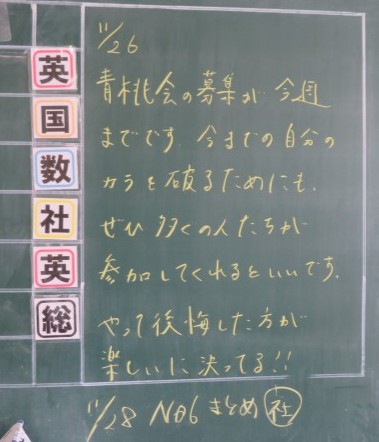 英
国
数
社
英
総
11/26
青桃会の募集が今週
までです。今までの自分の
カラを破るためにも、
ぜひ多くの人たちが
参加してくれるといいです。
やって後悔した方が
楽しいに決ってる!!
11/28 NO6 まとめ 社